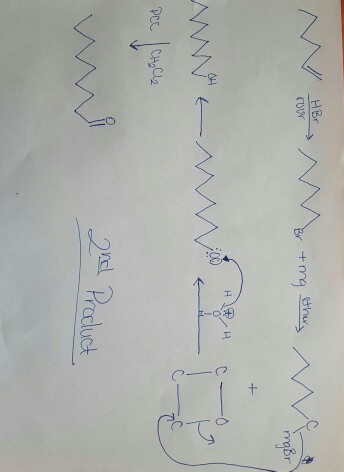 HBr
ROOR
Br + mg
ether
C
mgBr
+
C O
C C
H
H O H
⊕
:O:
OH
PCC
CH2Cl2
O
2nd Product